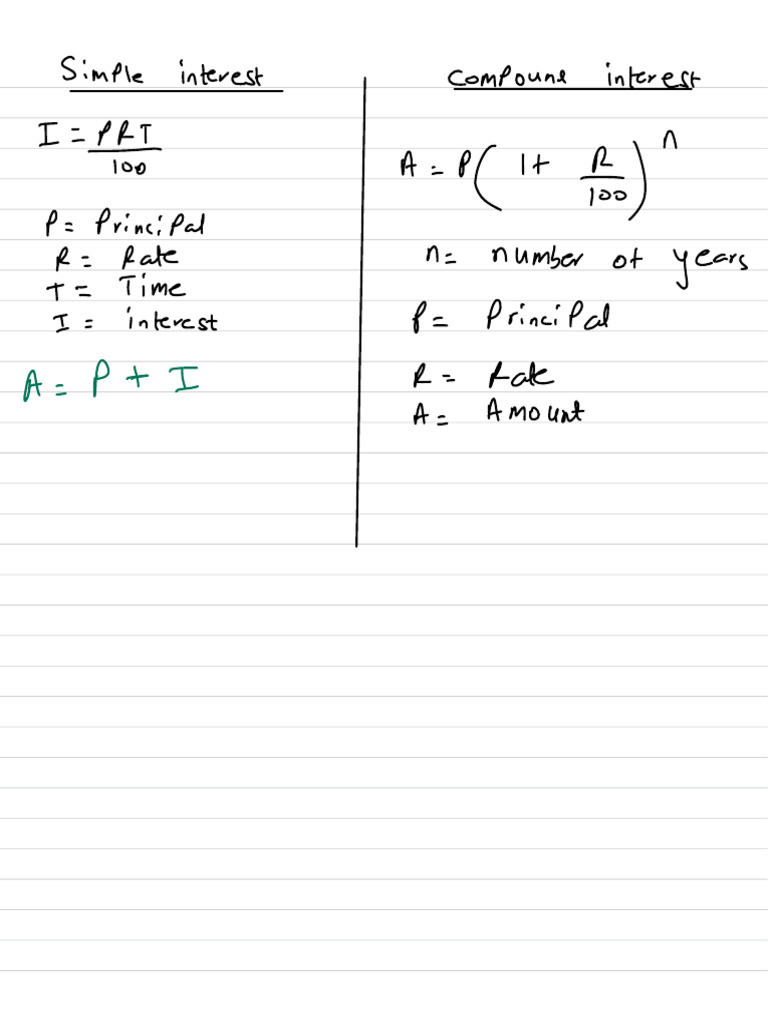 Simple interest
I = PRT
100
P = Principal
R = Rate
T = Time
I = interest
A = P + I
compoune interest
A = P ( 1 + R ) n
100
n = number of years
P = Principal
R = Rate
A = Amount